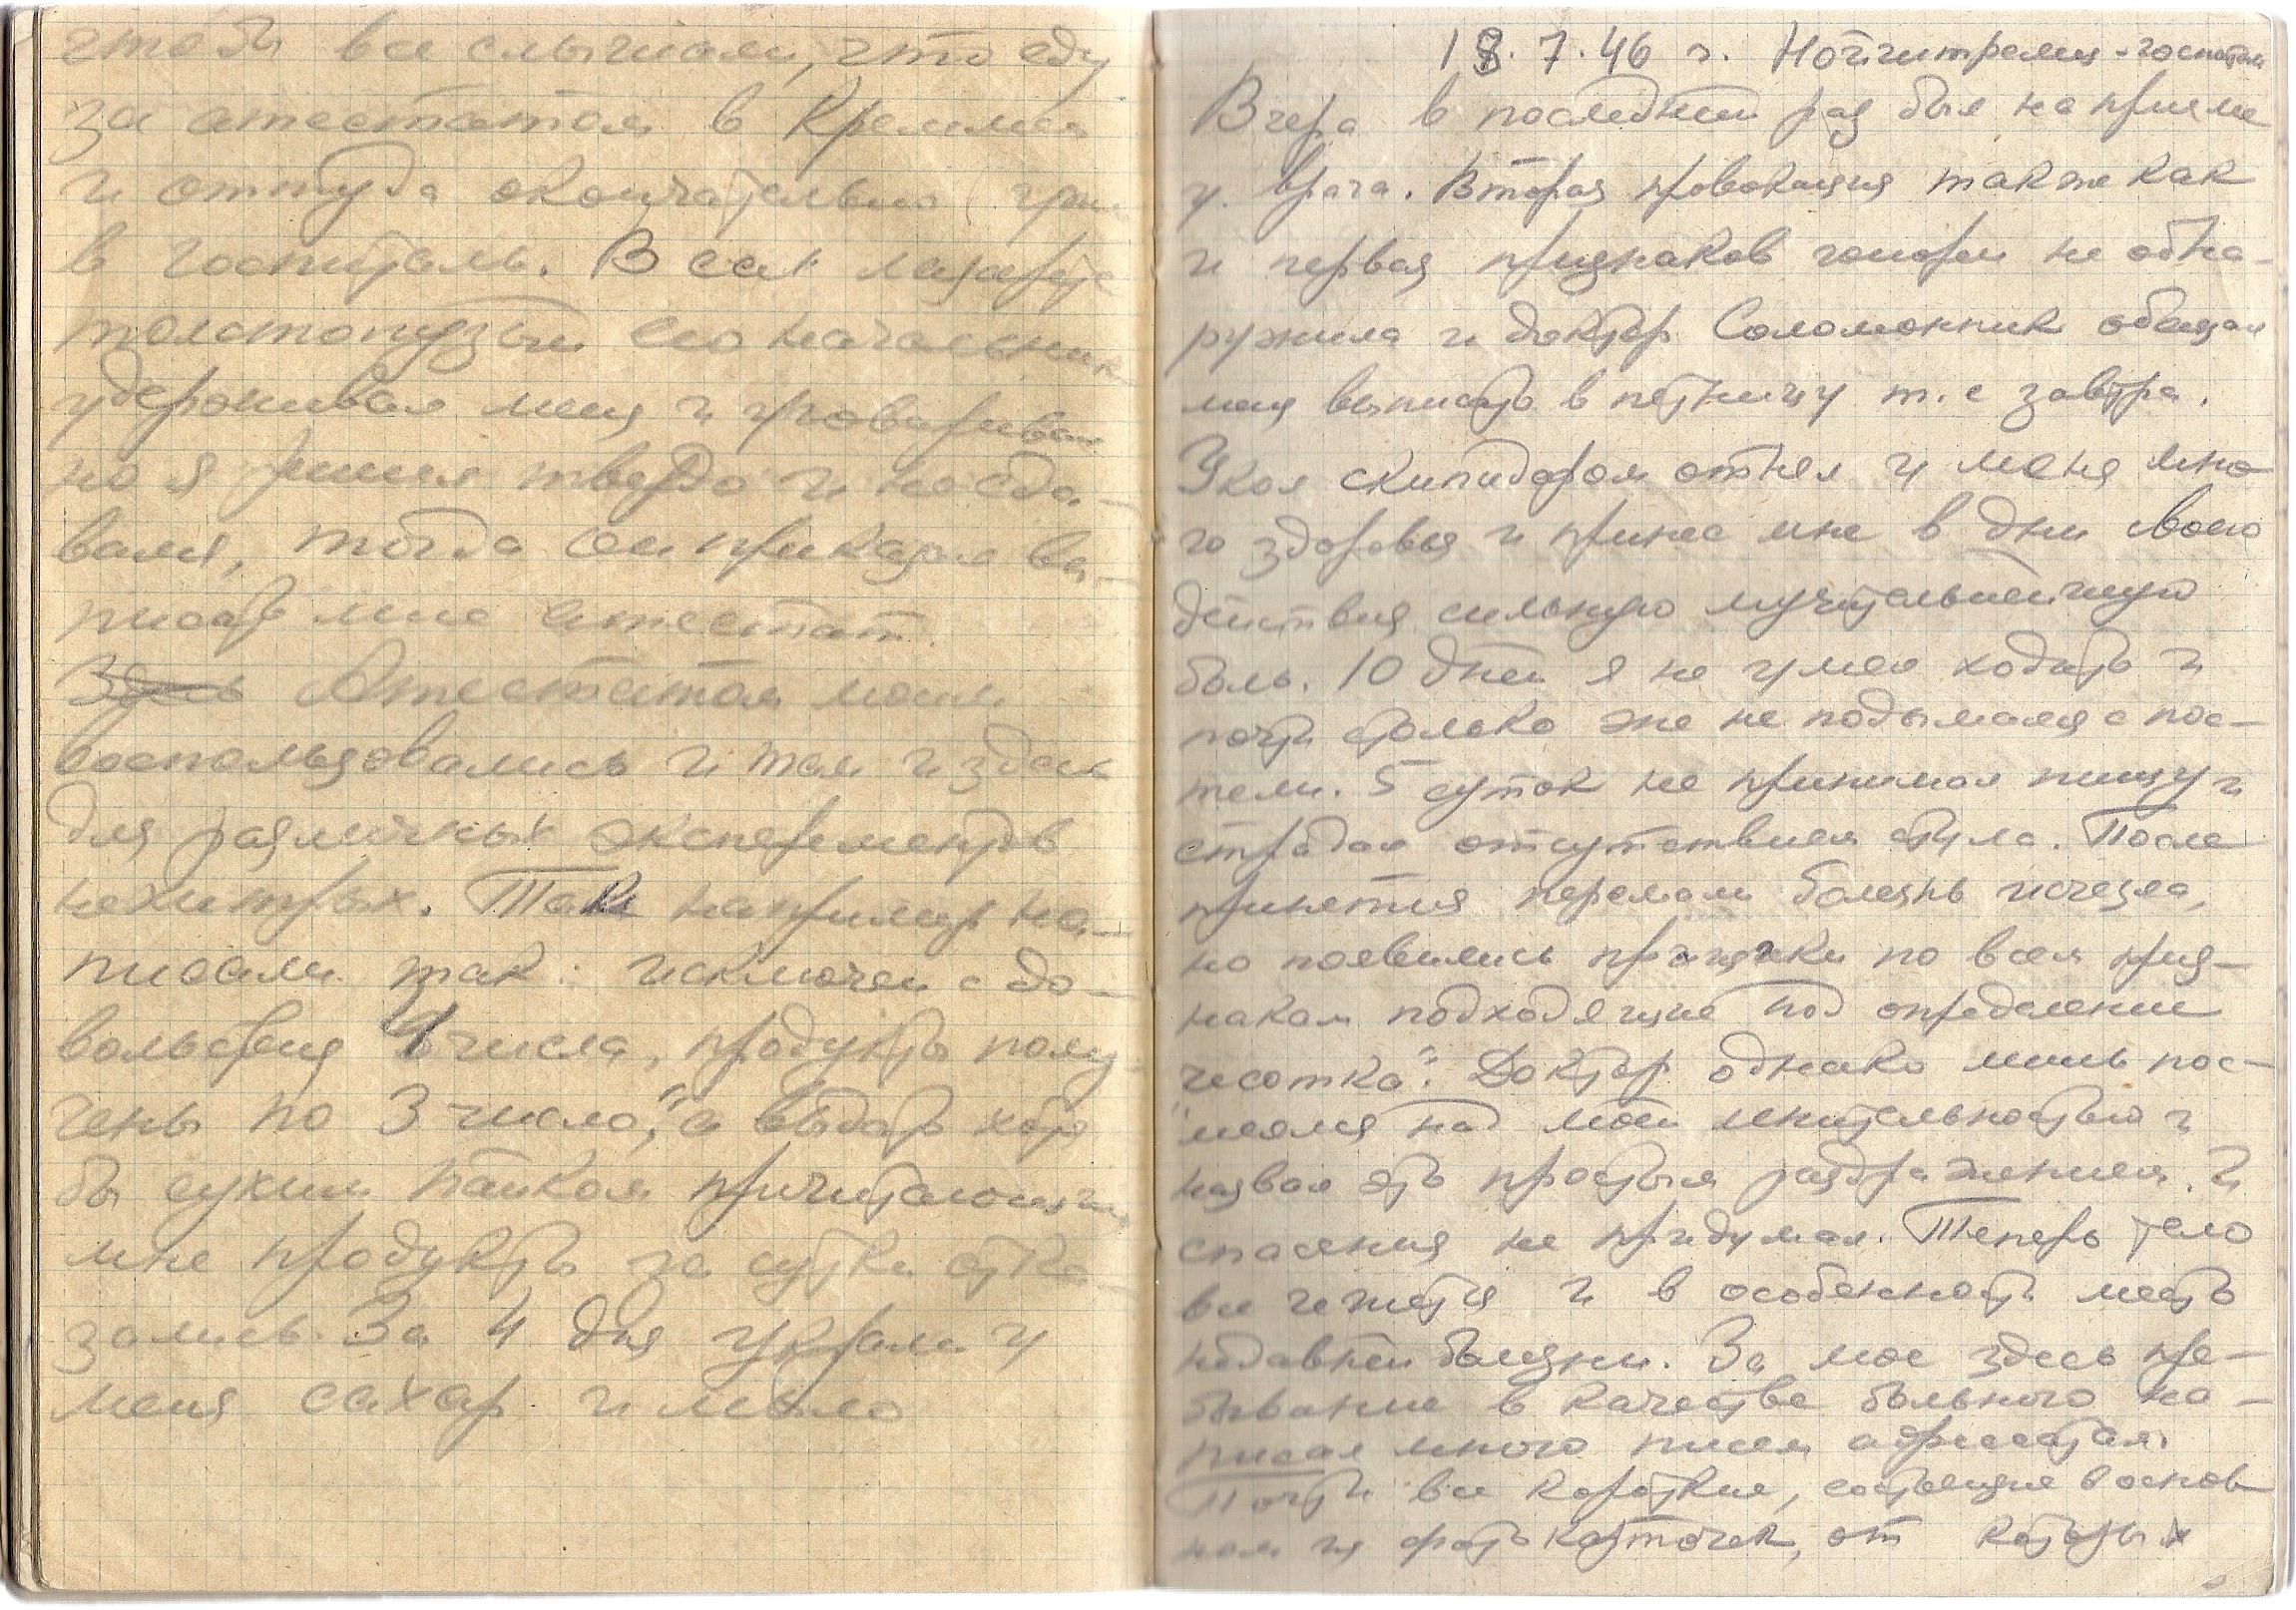 чтобы все слышали, что еду
за атестатом в Креммен
и оттуда окончательно уже
в госпиталь. В сан лазарете
толстопузый его начальник
удерживал меня и уговаривал
но я решил твердо и не сда-
вался, тогда он приказал вы-
писать мне атестат.
Здесь Атестатом моим
воспользовались и там и здесь
для различных экспериментов
нехитрых. Так например на-
писали так: исключен с до-
вольствия 4 числа, продукты полу-
чены по 3 число," а выдать хотя
бы сухим пайком причитающиеся
мне продукты за сутки отка-
зались. За 4 дня украли у
меня сахар и мыло
18.7.46 г. Нойштрелиц - госпиталь
Вчера в последний раз был на приеме
у врача. Вторая провокация также как
и первая признаков гонореи не обна-
ружила и доктор Соломонник обещал
меня выписать в пятницу т.е завтра.
Укол скипидаром отнял у меня мно
го здоровья и принес мне в дни своего
действия сильную мучительнейшую
боль. 10 дней я не умел ходить и
почти столько же не подымался с пос-
тели. 5 суток не принимал пищу и
страдал отсутствием стула. После
принятия болезнь исчезла,
но появились прыщики по всем приз-
накам подходящие под определение
"чесотка". Доктор однако лишь пос-
меялся над моей мнительностью и
назвал это простым раздражением. И
спасения не придумал. Теперь тело
все чешется и в особенности место
недавней болезни. За мое здесь пре-
бывание в качестве больного на-
писал много писем адресатам.
Почти все короткие, состоящие в основ
ном из фото карточек, от которых